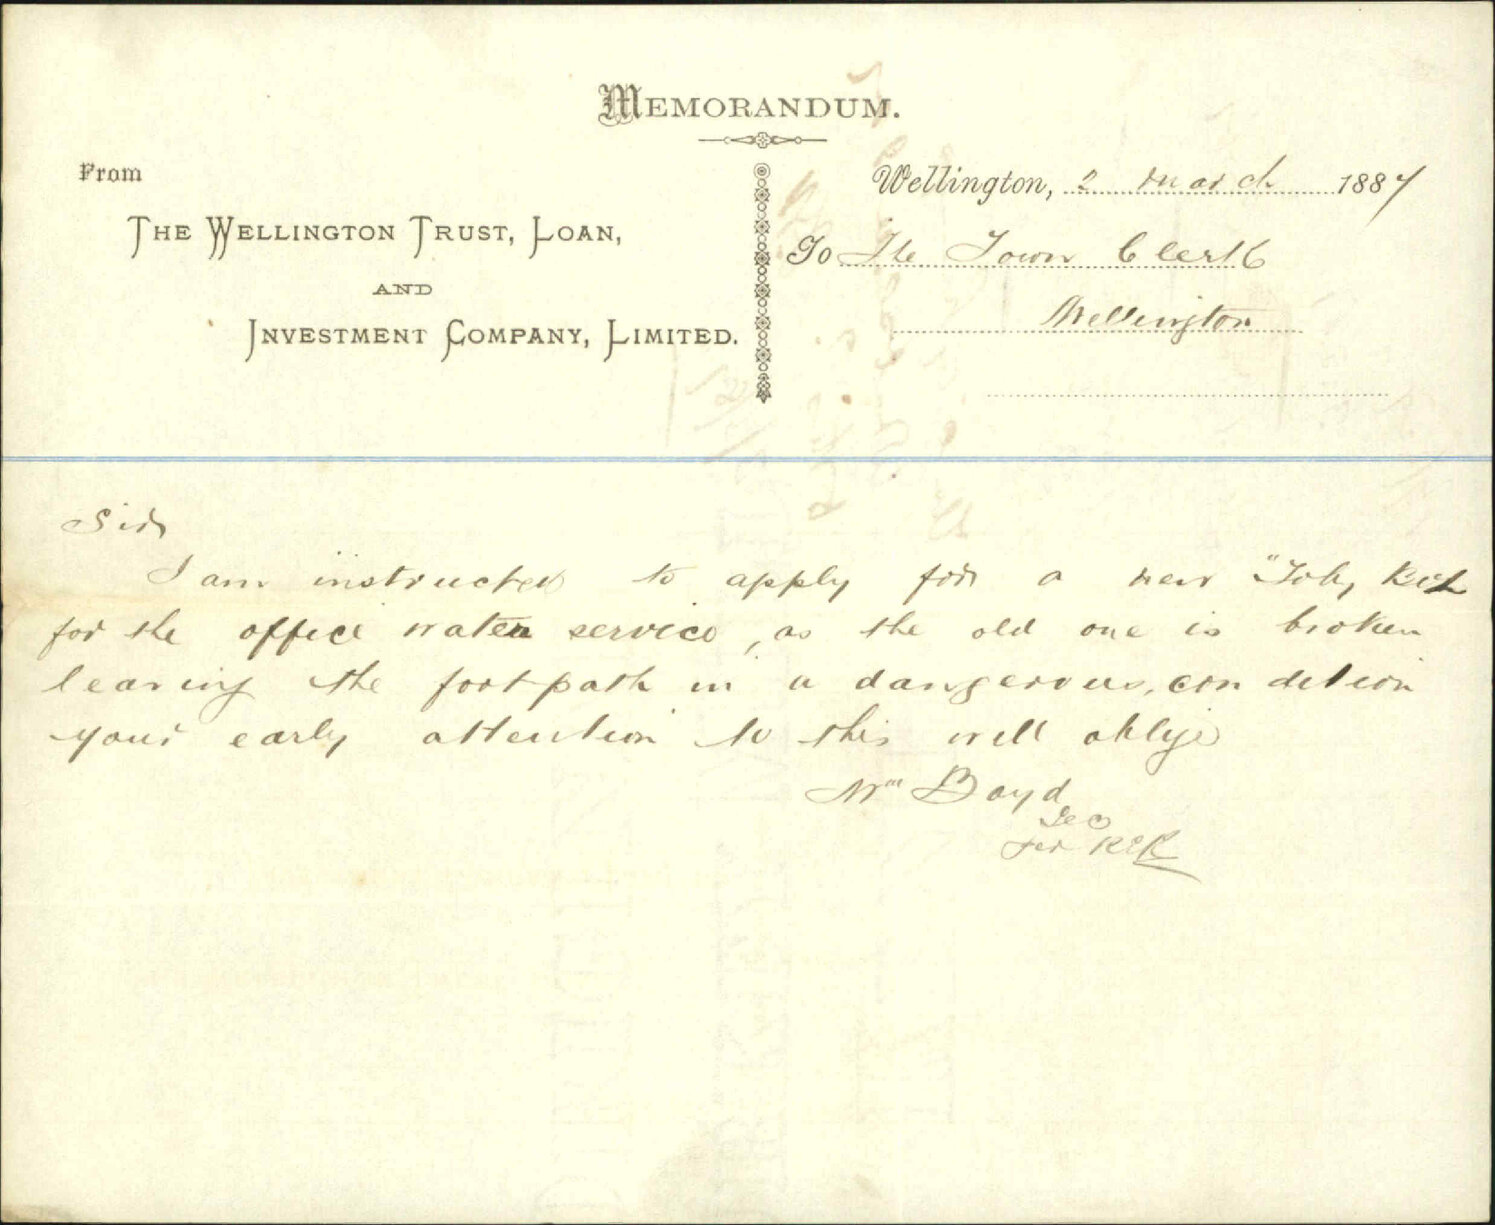 MEMORANDUM.
From
THE WELLINGTON TRUST, LOAN,
AND
INVESTMENT COMPANY, LIMITED.
Wellington, 2 March 1887
To The Town Clerk
Wellington
Sir
I am instructed to apply for a new "Toby Box
for the office water service, as the old one is broken
leaving the footpath in a dangerous, condition
your early attention to this will oblige
Wm Boyd
Sec
per